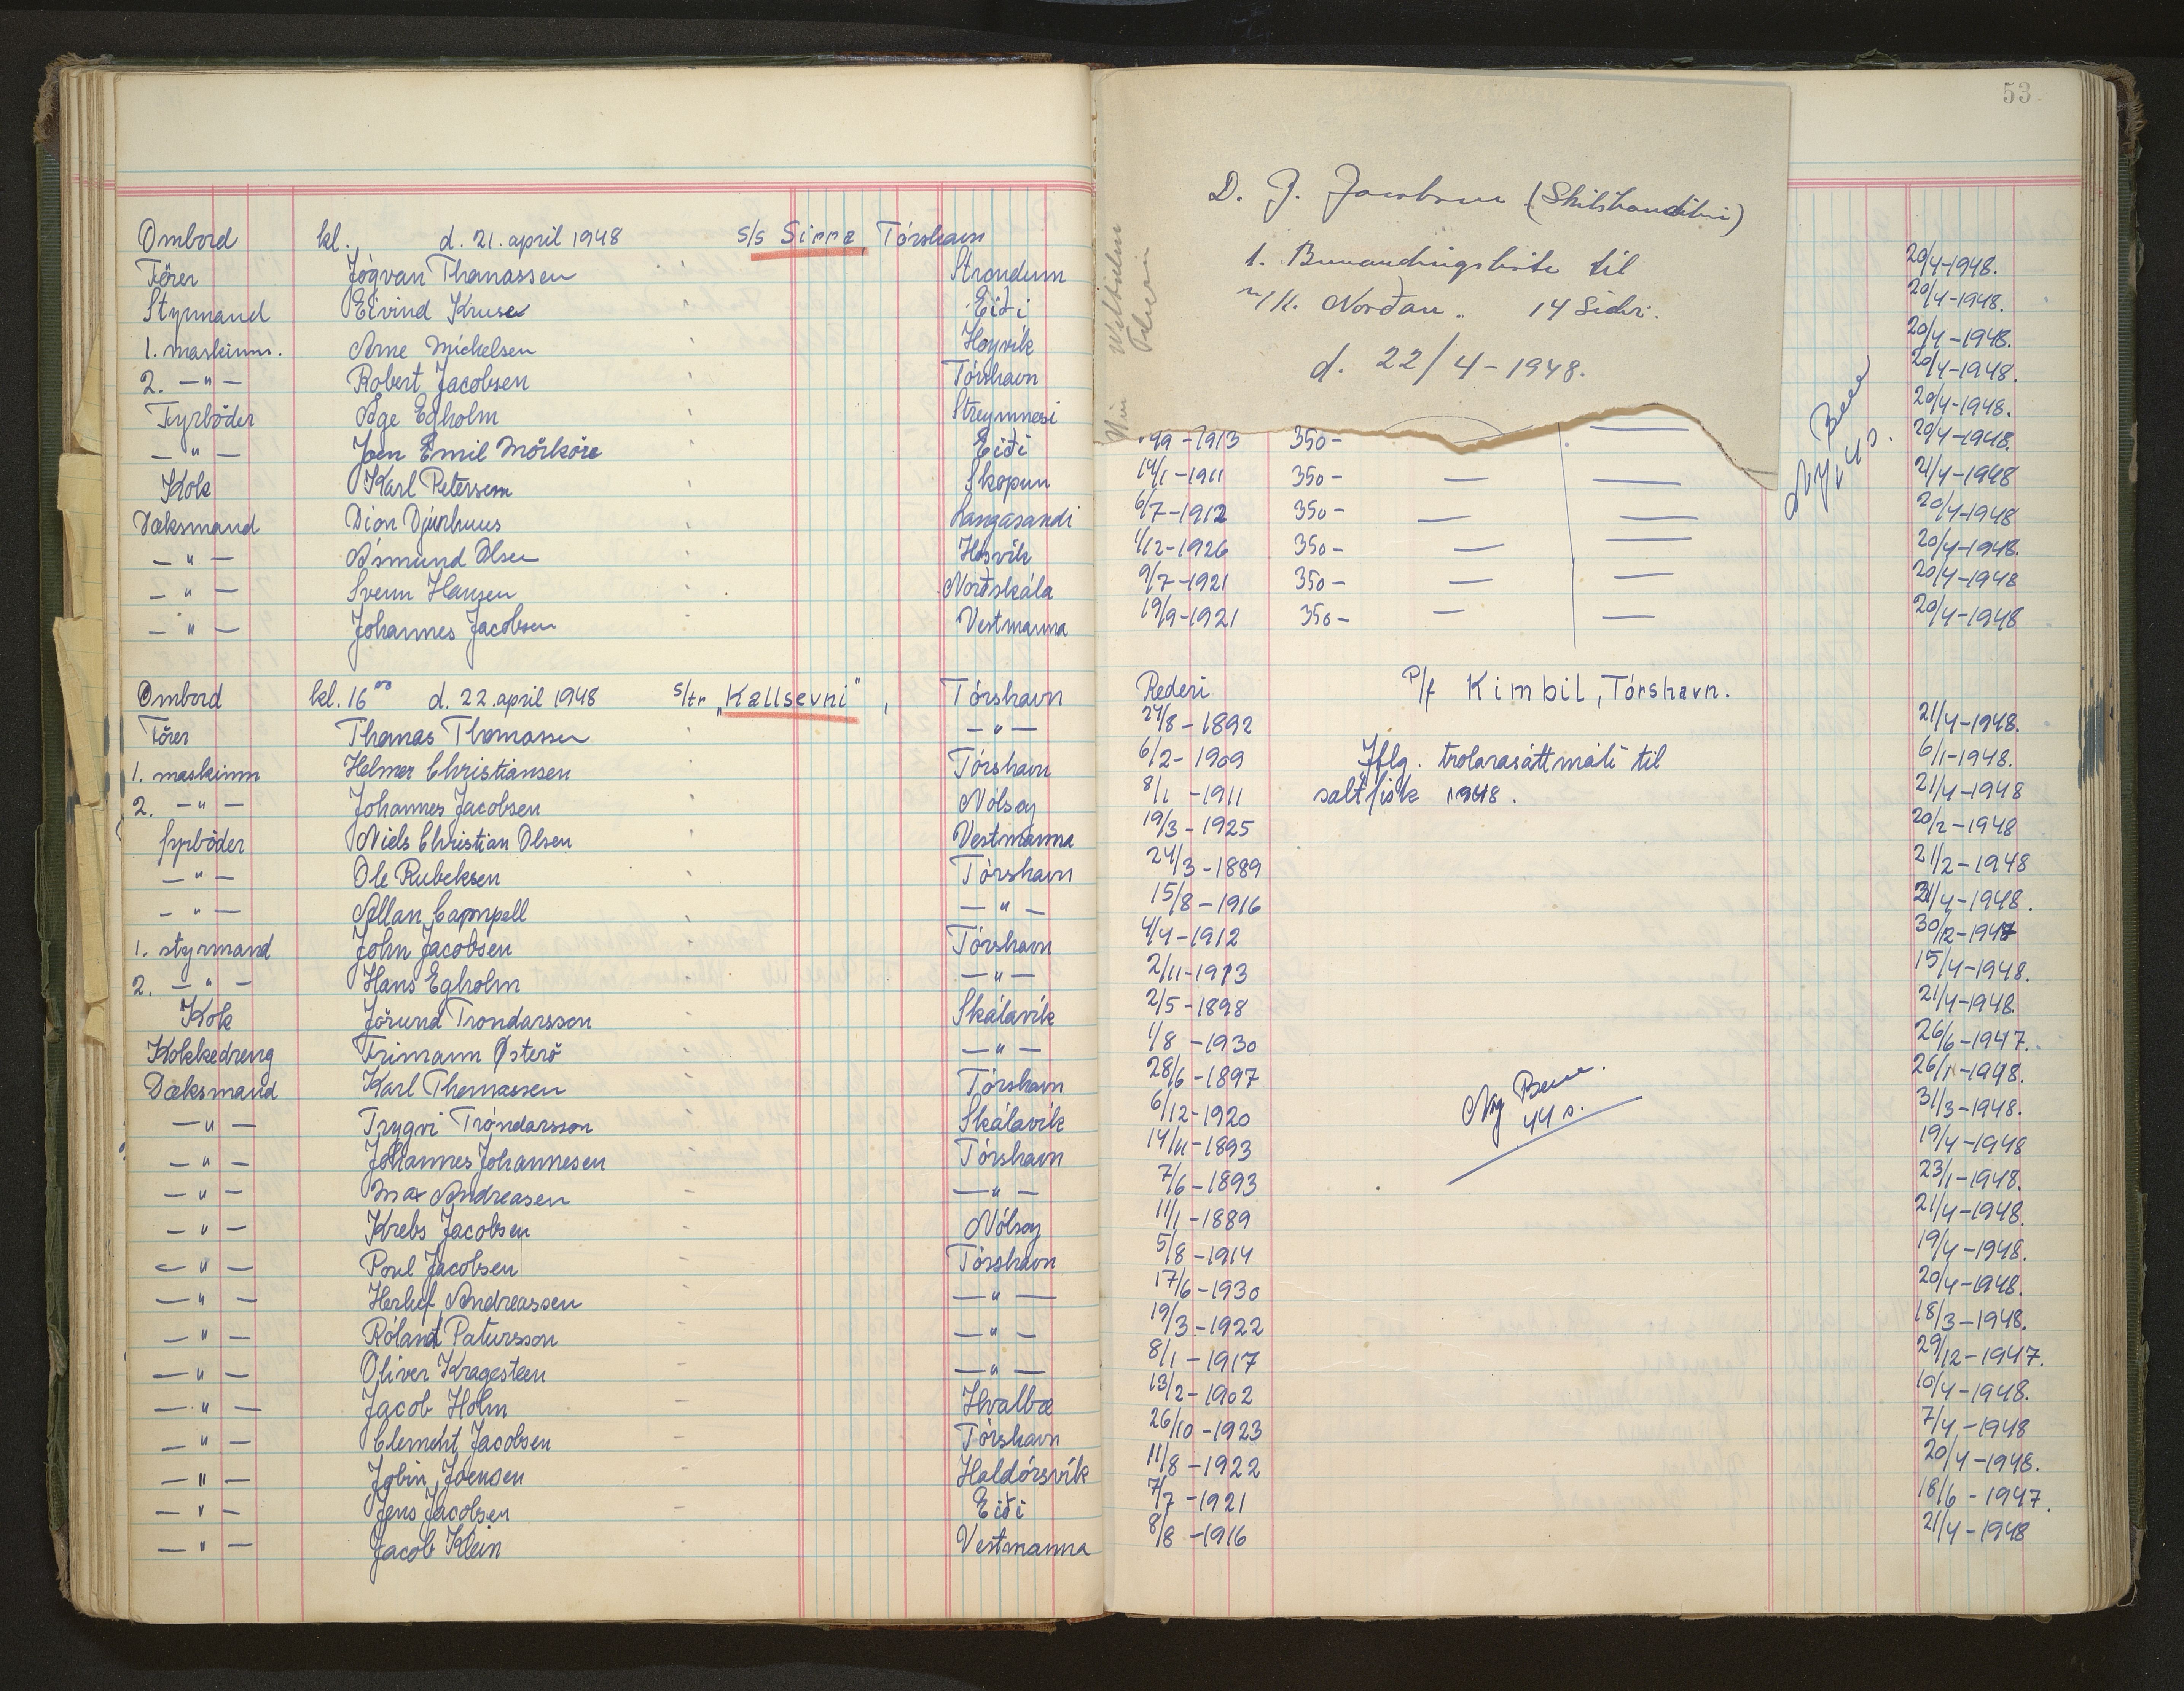 53
D. J. Jacobsen
1. Bemandingsliste til
m/k. Norðan. 14 Sider.
d. 22/4-1948.
Ombord kl. d. 21. april 1948 s/s Sirra Tórshavn
Förer Jógvan Thomassen Strondum 20/4-1948.
Styrmand Eivind Kruse Eiði 20/4-1948.
1. maskinm. Arne Mickelsen Hoyvík 20/4-1948.
2. -"- Robert Jacobsen Tórshavn 20/4-1948.
Fyrböder Åge Egholm Streymnesi 20/4-1948.
-"- Joen Emil Mörköre Eiði -1913 350- 20/4-1948.
Kok Karl Petersen Skopun 14/1-1911 350- — — 21/4-1948
Dæksmand Dion Djurhuus Langasandi 6/7-1912 350- — — 20/4-1948
-"- Ásmund Olsen Hósvík 1/12-1926 350- — — 20/4-1948.
-"- Svenn Hansen Norðskála 9/7-1921 350- — — 20/4-1948
-"- Johannes Jacobsen Vestmanna 19/9-1921 350- — — 20/4-1948
Ombord kl. 16⁰⁰ d. 22. april 1948 s/tr „Kallsevni", Tórshavn Rederi P/f Kimbil, Tórshavn.
Förer Thomas Thomassen -"- 24/8-1892 21/4-1948.
1. maskinm Helmer Christiansen Tórshavn 6/2-1909 Iflg. trolarasáttmáli til 6/1-1948.
2. -"- Johannes Jacobsen Nólsoy 8/1-1911 saltfisk 1948. 21/4-1948
fyrböder Niels Christian Olsen Vestmanna 19/3-1925 20/2-1948
-"- Ole Rubeksen Tórshavn 24/3-1889 21/2-1948
-"- Allan Campell -"- 15/8-1916 21/4-1948.
1. styrmand John Jacobsen Tórshavn 4/4-1912 30/12-1947
2. -"- Hans Egholm -"- 2/11-1913 15/4-1948.
Kok Jörund Trondarsson Skálavík 2/5-1898 21/4-1948.
Kokkedreng Trimann Østerö -"- 1/8-1930 26/6-1947.
Dæksmand Karl Thomassen Tórshavn 28/6-1897 26/1-1948.
-"- Trygvi Tróndarsson Skálavík 6/12-1920 44 s. 31/3-1948.
-"- Johannes Johannesen Tórshavn 14/11-1893 19/4-1948
-"- Max Andreasen -"- 7/6-1893 23/1-1948.
-"- Krebs Jacobsen Nólsoy 11/1-1889 21/4-1948.
-"- Poul Jacobsen Tórshavn 5/8-1914 19/4-1948.
-"- Herluf Andreassen -"- 17/6-1930 20/4-1948.
-"- Róland Patursson -"- 19/3-1922 18/3-1948.
-"- Oliver Kragesteen -"- 8/1-1917 29/12-1947.
-"- Jacob Holm Hvalbæ 13/2-1902 10/4-1948.
-"- Clement Jacobsen Tórshavn 26/10-1923 7/4-1948
-"- Jobin Joensen Haldórsvík 11/8-1922 20/4-1948.
-"- Jens Jacobsen Eiði 7/7-1921 18/6-1947.
-"- Jacob Klein Vestmanna 8/8-1916 21/4-1948